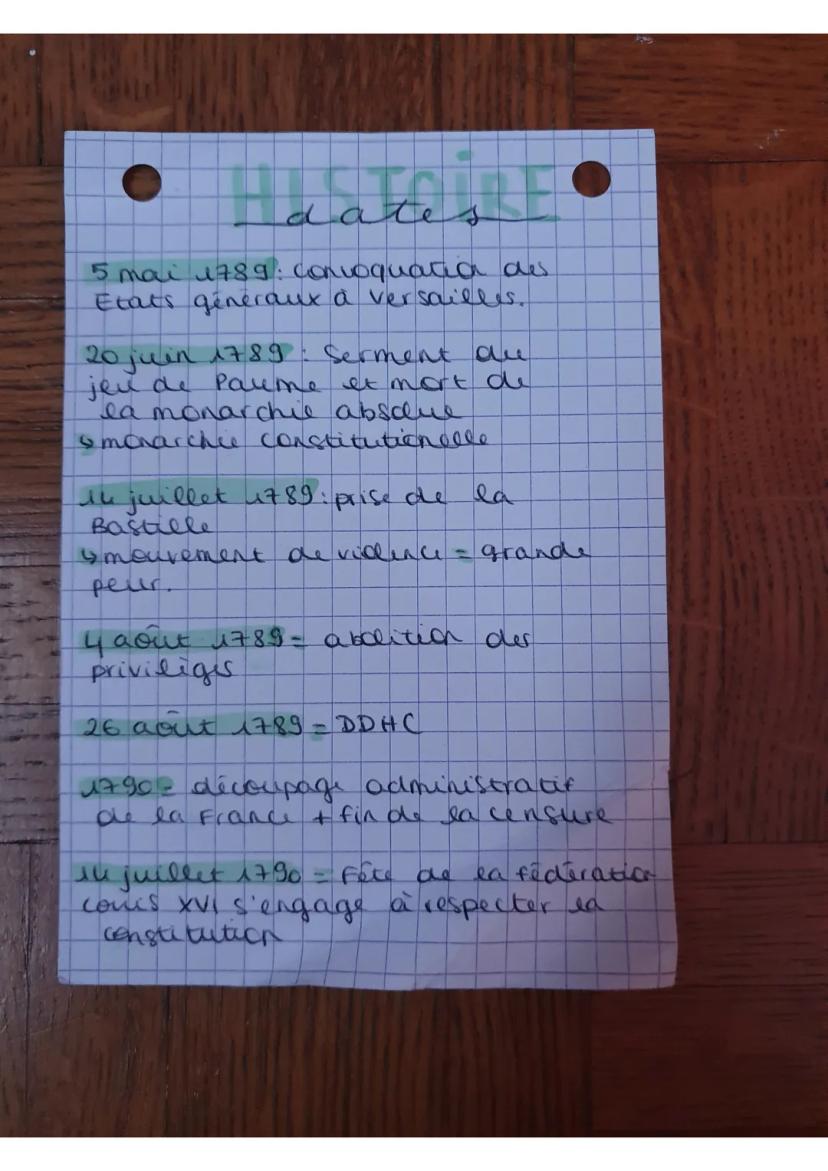 HISTOIRE
dates
5 mai 1789 : convoquation des
Etats généraux à Versailles.
20 juin 1789 : Serment du
jeu de Paume et mort de
la monarchie absolue
↳ monarchie constitutionelle
14 juillet 1789 : prise de la
Bastille
↳ mouvement de violence = grande
peur.
4 août 1789 = abolition des
priviliges
26 août 1789 = DDHC
1790 = découpage administratif
de la France + fin de la censure
14 juillet 1790 = Fête de la fédération
Louis XVI s'engage à respecter la
constitution